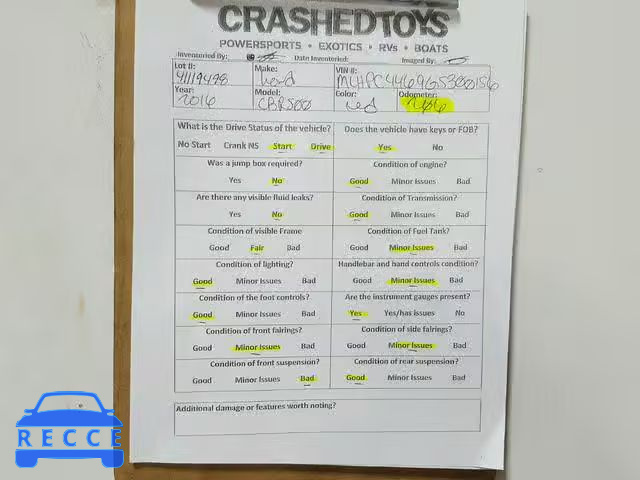 CRASHEDTOYS
POWERSPORTS • EXOTICS • RVs • BOATS
Inventoried By: Date Inventoried: Imaged By:
Lot #: Make: VIN #:
41119498 MLHPC4469G5300156
Year: Model: Color: Odometer:
2016 CBR500 red
What is the Drive Status of the vehicle? Does the vehicle have keys or FOB?
No Start Crank NS Start Drive Yes No
Was a jump box required? Condition of engine?
Yes No Good Minor Issues Bad
Are there any visible fluid leaks? Condition of Transmission?
Yes No Good Minor Issues Bad
Condition of visible Frame Condition of Fuel Tank?
Good Fair Bad Good Minor Issues Bad
Condition of lighting? Handlebar and hand controls condition?
Good Minor Issues Bad Good Minor Issues Bad
Condition of the foot controls? Are the instrument gauges present?
Good Minor Issues Bad Yes Yes/has issues No
Condition of front fairings? Condition of side fairings?
Good Minor Issues Bad Good Minor Issues Bad
Condition of front suspension? Condition of rear suspension?
Good Minor Issues Bad Good Minor Issues Bad
Additional damage or features worth noting?
RECCE